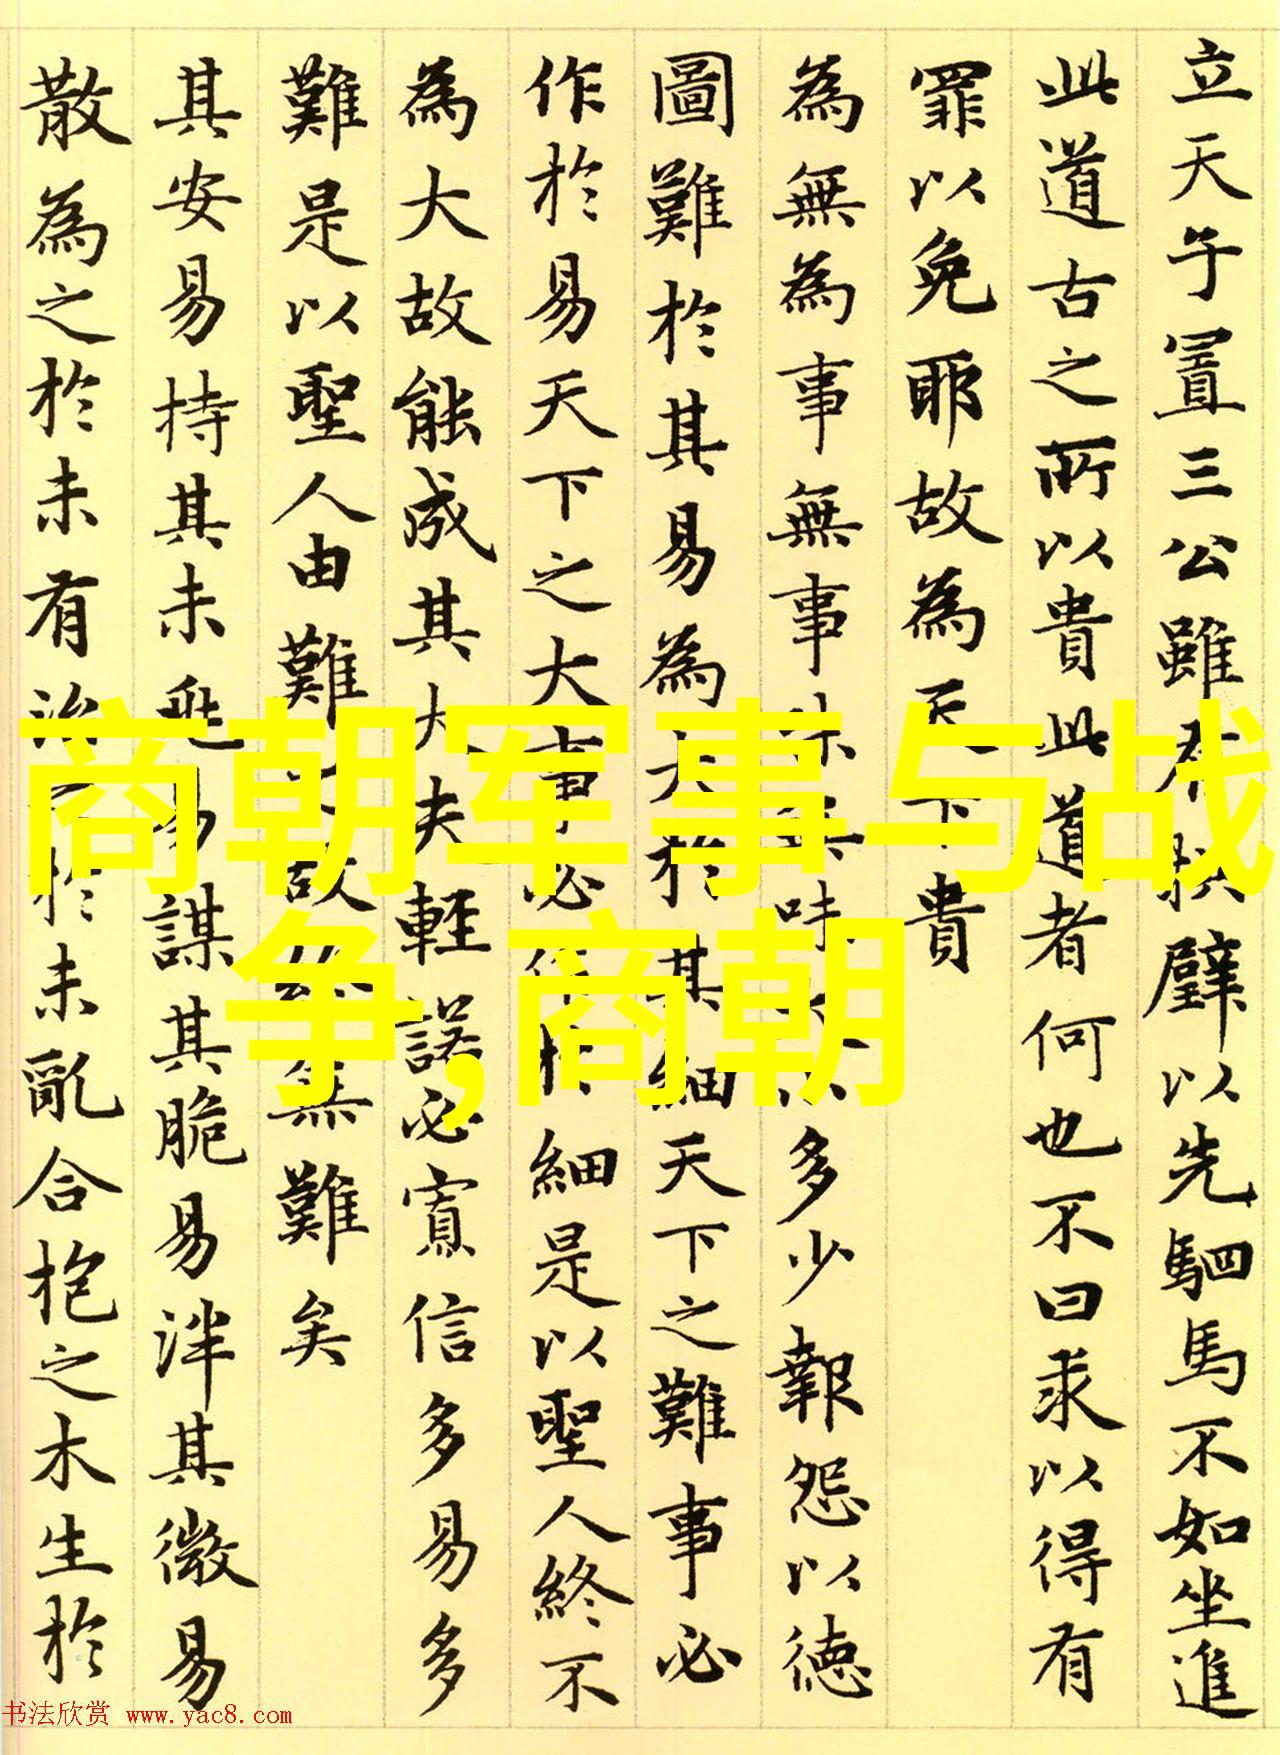 立天子置三公雖有拱璧以先駟馬不如坐進
此道古之所以貴此道者何也不曰求以得有
罪以免耶故為天下貴
為無為事無事味無味大小多少報怨以德
圖難於其易為大於其細天下之難事必
作於易天下之大事必作於細是以聖人終不
為大故能成其大夫輕諾必寡信多易多
難是以聖人由難之故終無難矣
其安易持其未兆易謀其脆易泮其微易
散為之於未有治之於未亂合抱之木生於
商朝军事与战
争,商朝
书法欣赏 www.yac8.com